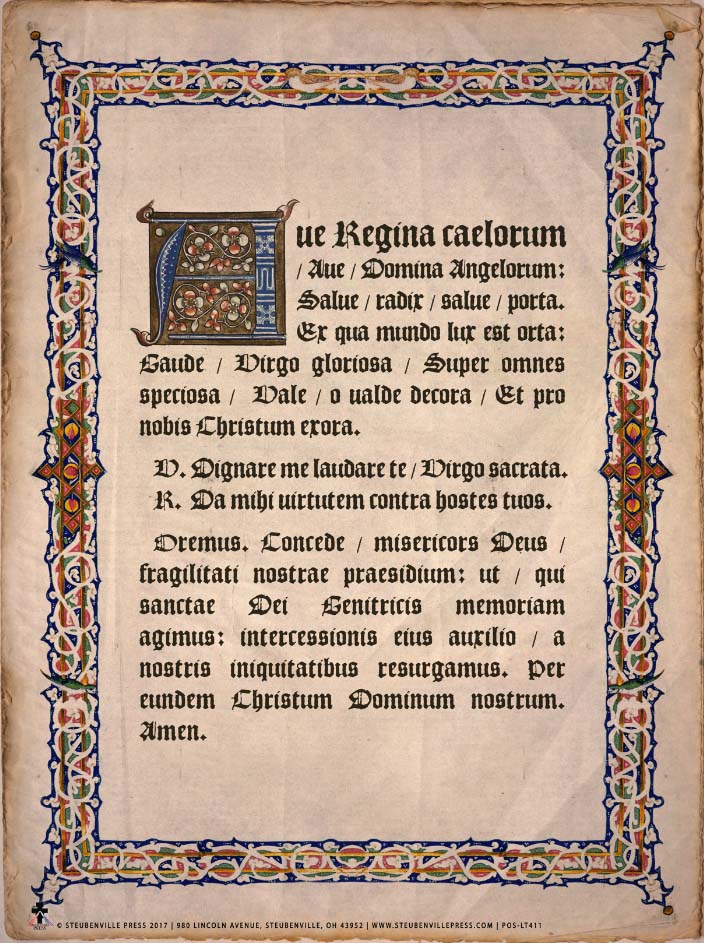 Aue Regina caelorum
/ Aue / Domina Angelorum:
Salue / radix / salue / porta.
Ex qua mundo lux est orta:
Gaude / Virgo gloriosa / Super omnes
speciosa / Vale / o ualde decora / Et pro
nobis Christum exora.
V. Dignare me laudare te / Virgo sacrata.
R. Da mihi uirtutem contra hostes tuos.
Oremus. Concede / misericors Deus /
fragilitati nostrae praesidium: ut / qui
sanctae Dei Genitricis memoriam
agimus: intercessionis eius auxilio / a
nostris iniquitatibus resurgamus. Per
eundem Christum Dominum nostrum.
Amen.
© STEUBENVILLE PRESS 2017 | 980 LINCOLN AVENUE, STEUBENVILLE, OH 43952 | WWW.STEUBENVILLEPRESS.COM | POS-LT411